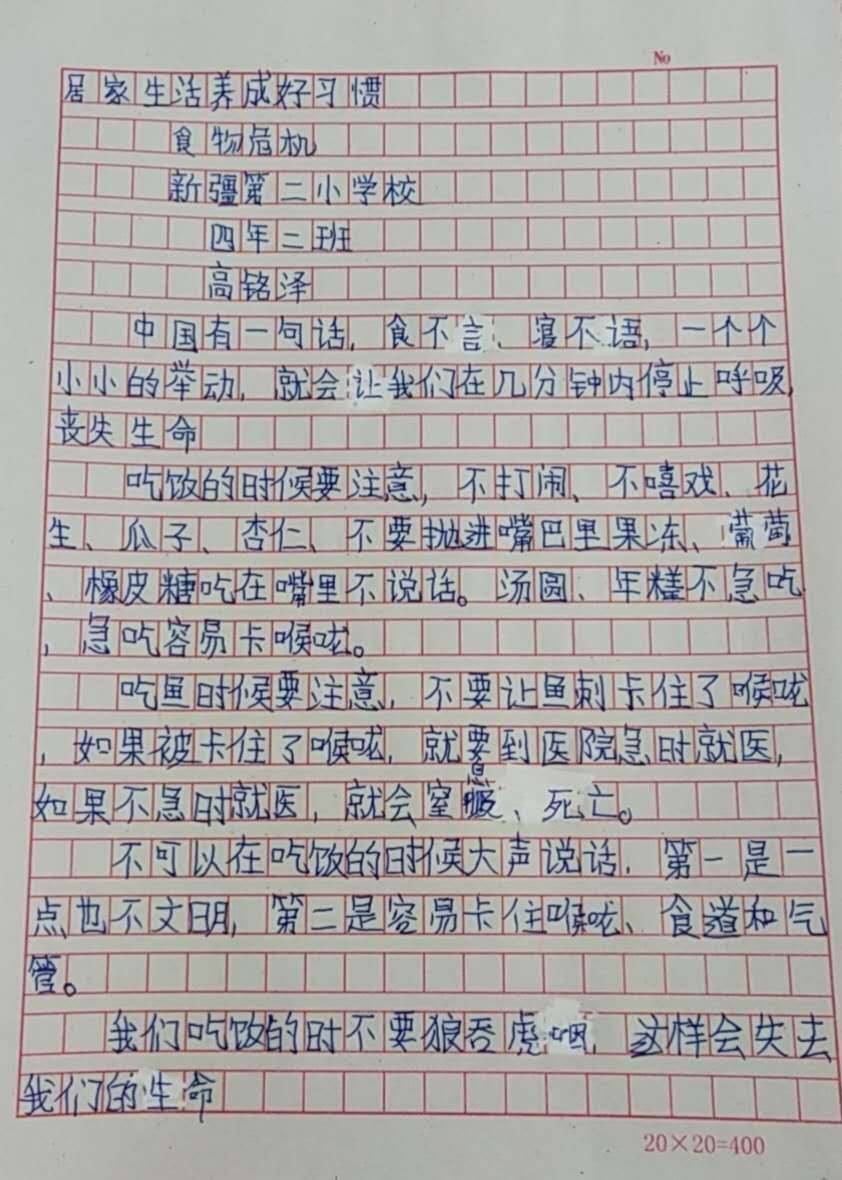 No
居家生活养成好习惯
食物危机
新疆第二小学校
四年二班
高铭泽
中国有一句话，食不言、寝不语，一个个
小小的举动，就会让我们在几分钟内停止呼吸，
丧失生命
吃饭的时候要注意，不打闹、不嘻戏、花
生、瓜子、杏仁、不要抛进嘴巴里果冻、葡萄
、橡皮糖吃在嘴里不说话。汤圆、年糕不急吃
，急吃容易卡喉咙。
吃鱼时候要注意，不要让鱼刺卡住了喉咙
，如果被卡住了喉咙，就要到医院急时就医，
如果不急时就医，就会窒息、死亡。
不可以在吃饭的时候大声说话，第一是一
点也不文明，第二是容易卡住喉咙、食道和气
管。
我们吃饭的时不要狼吞虎咽，这样会失去
我们的生命
20×20=400